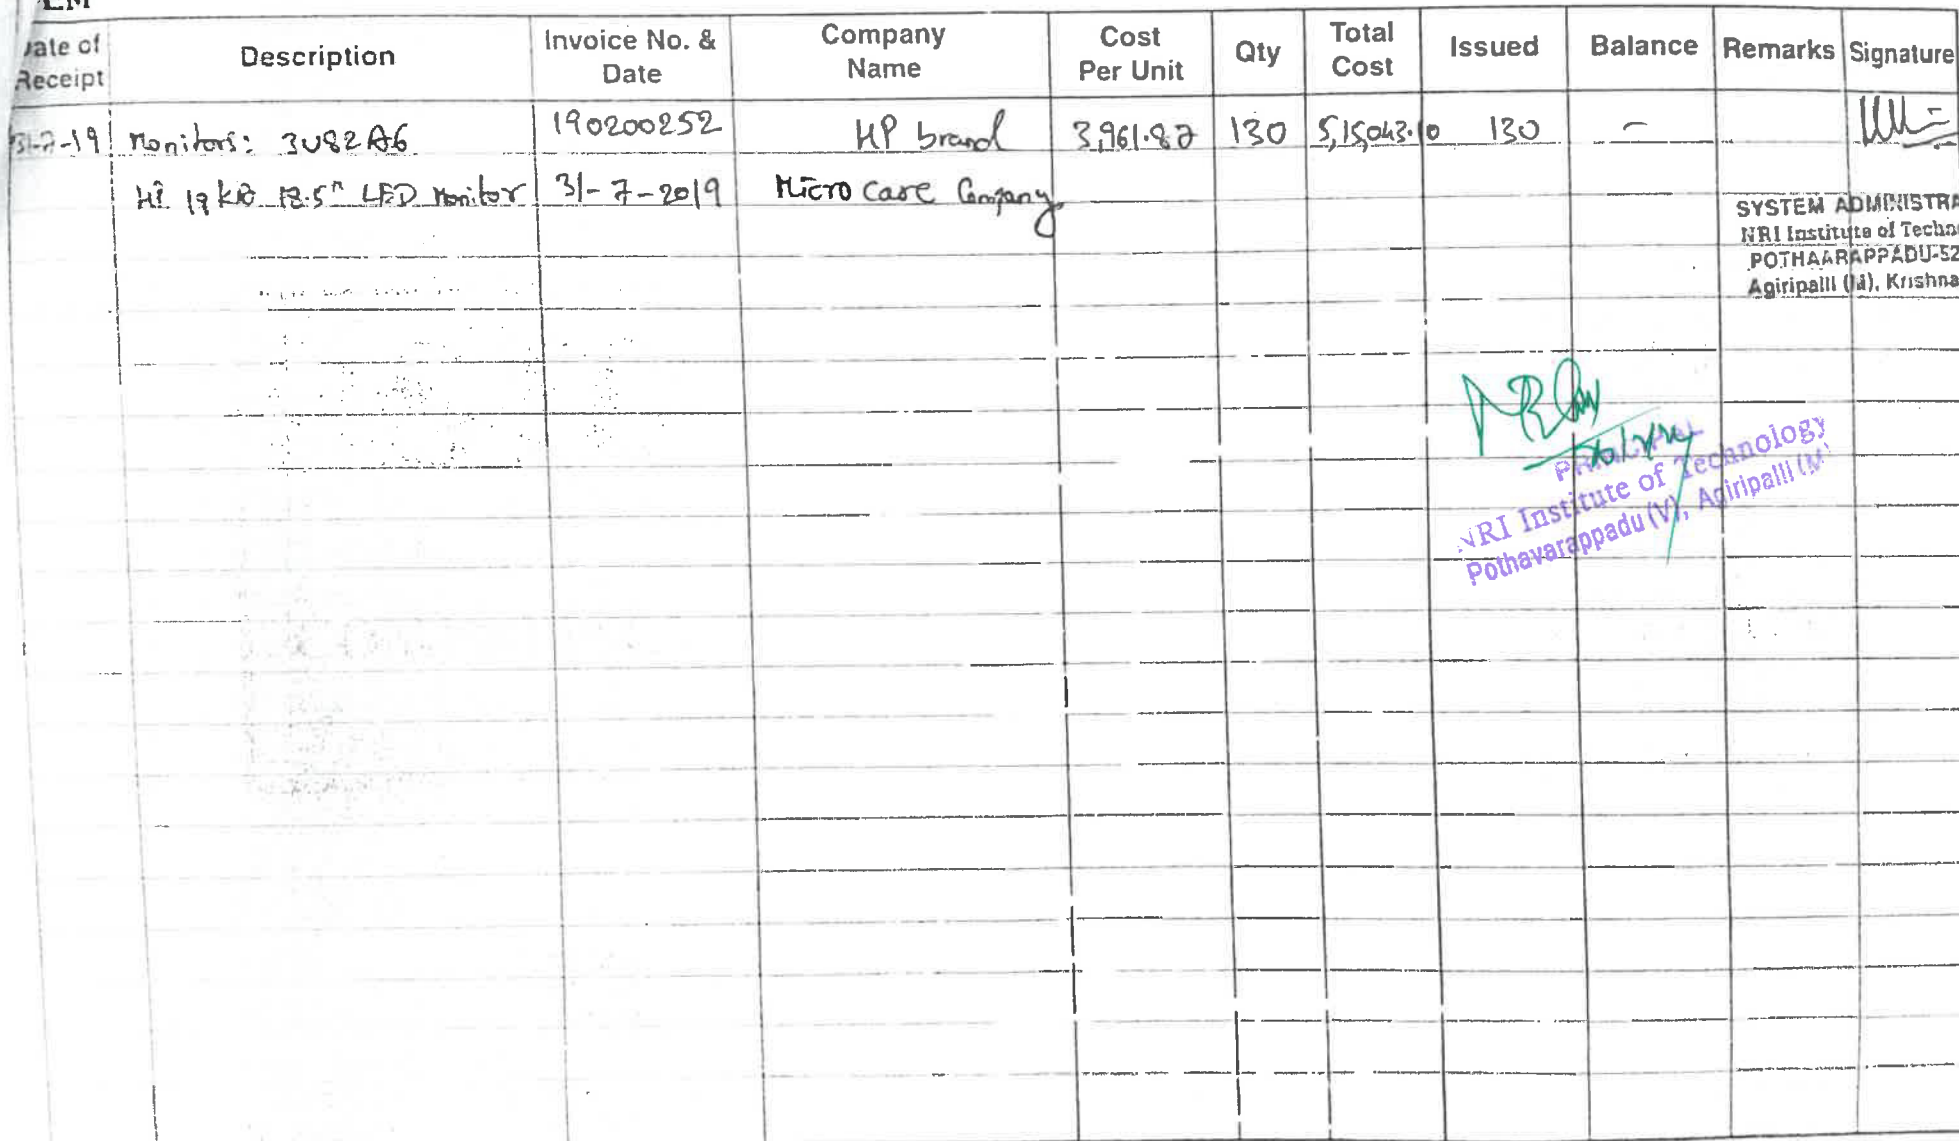 Date of Receipt Description Invoice No. & Date Company Name Cost Per Unit Qty Total Cost Issued Balance Remarks Signature
31-7-19 Monitors: 3U82A6 190200252 HP brand 3,961.87 130 5,15,043.10 130 -
19 18.5" LED Monitor 31-7-2019 Micro Care Company
SYSTEM ADMINISTRA
NRI Institute of Techno
POTHAARAPPADU-52
Agiripalli (M), Krishna
PRINCIPAL
NRI Institute of Technology
Pothavarappadu (V), Agiripalli (M)